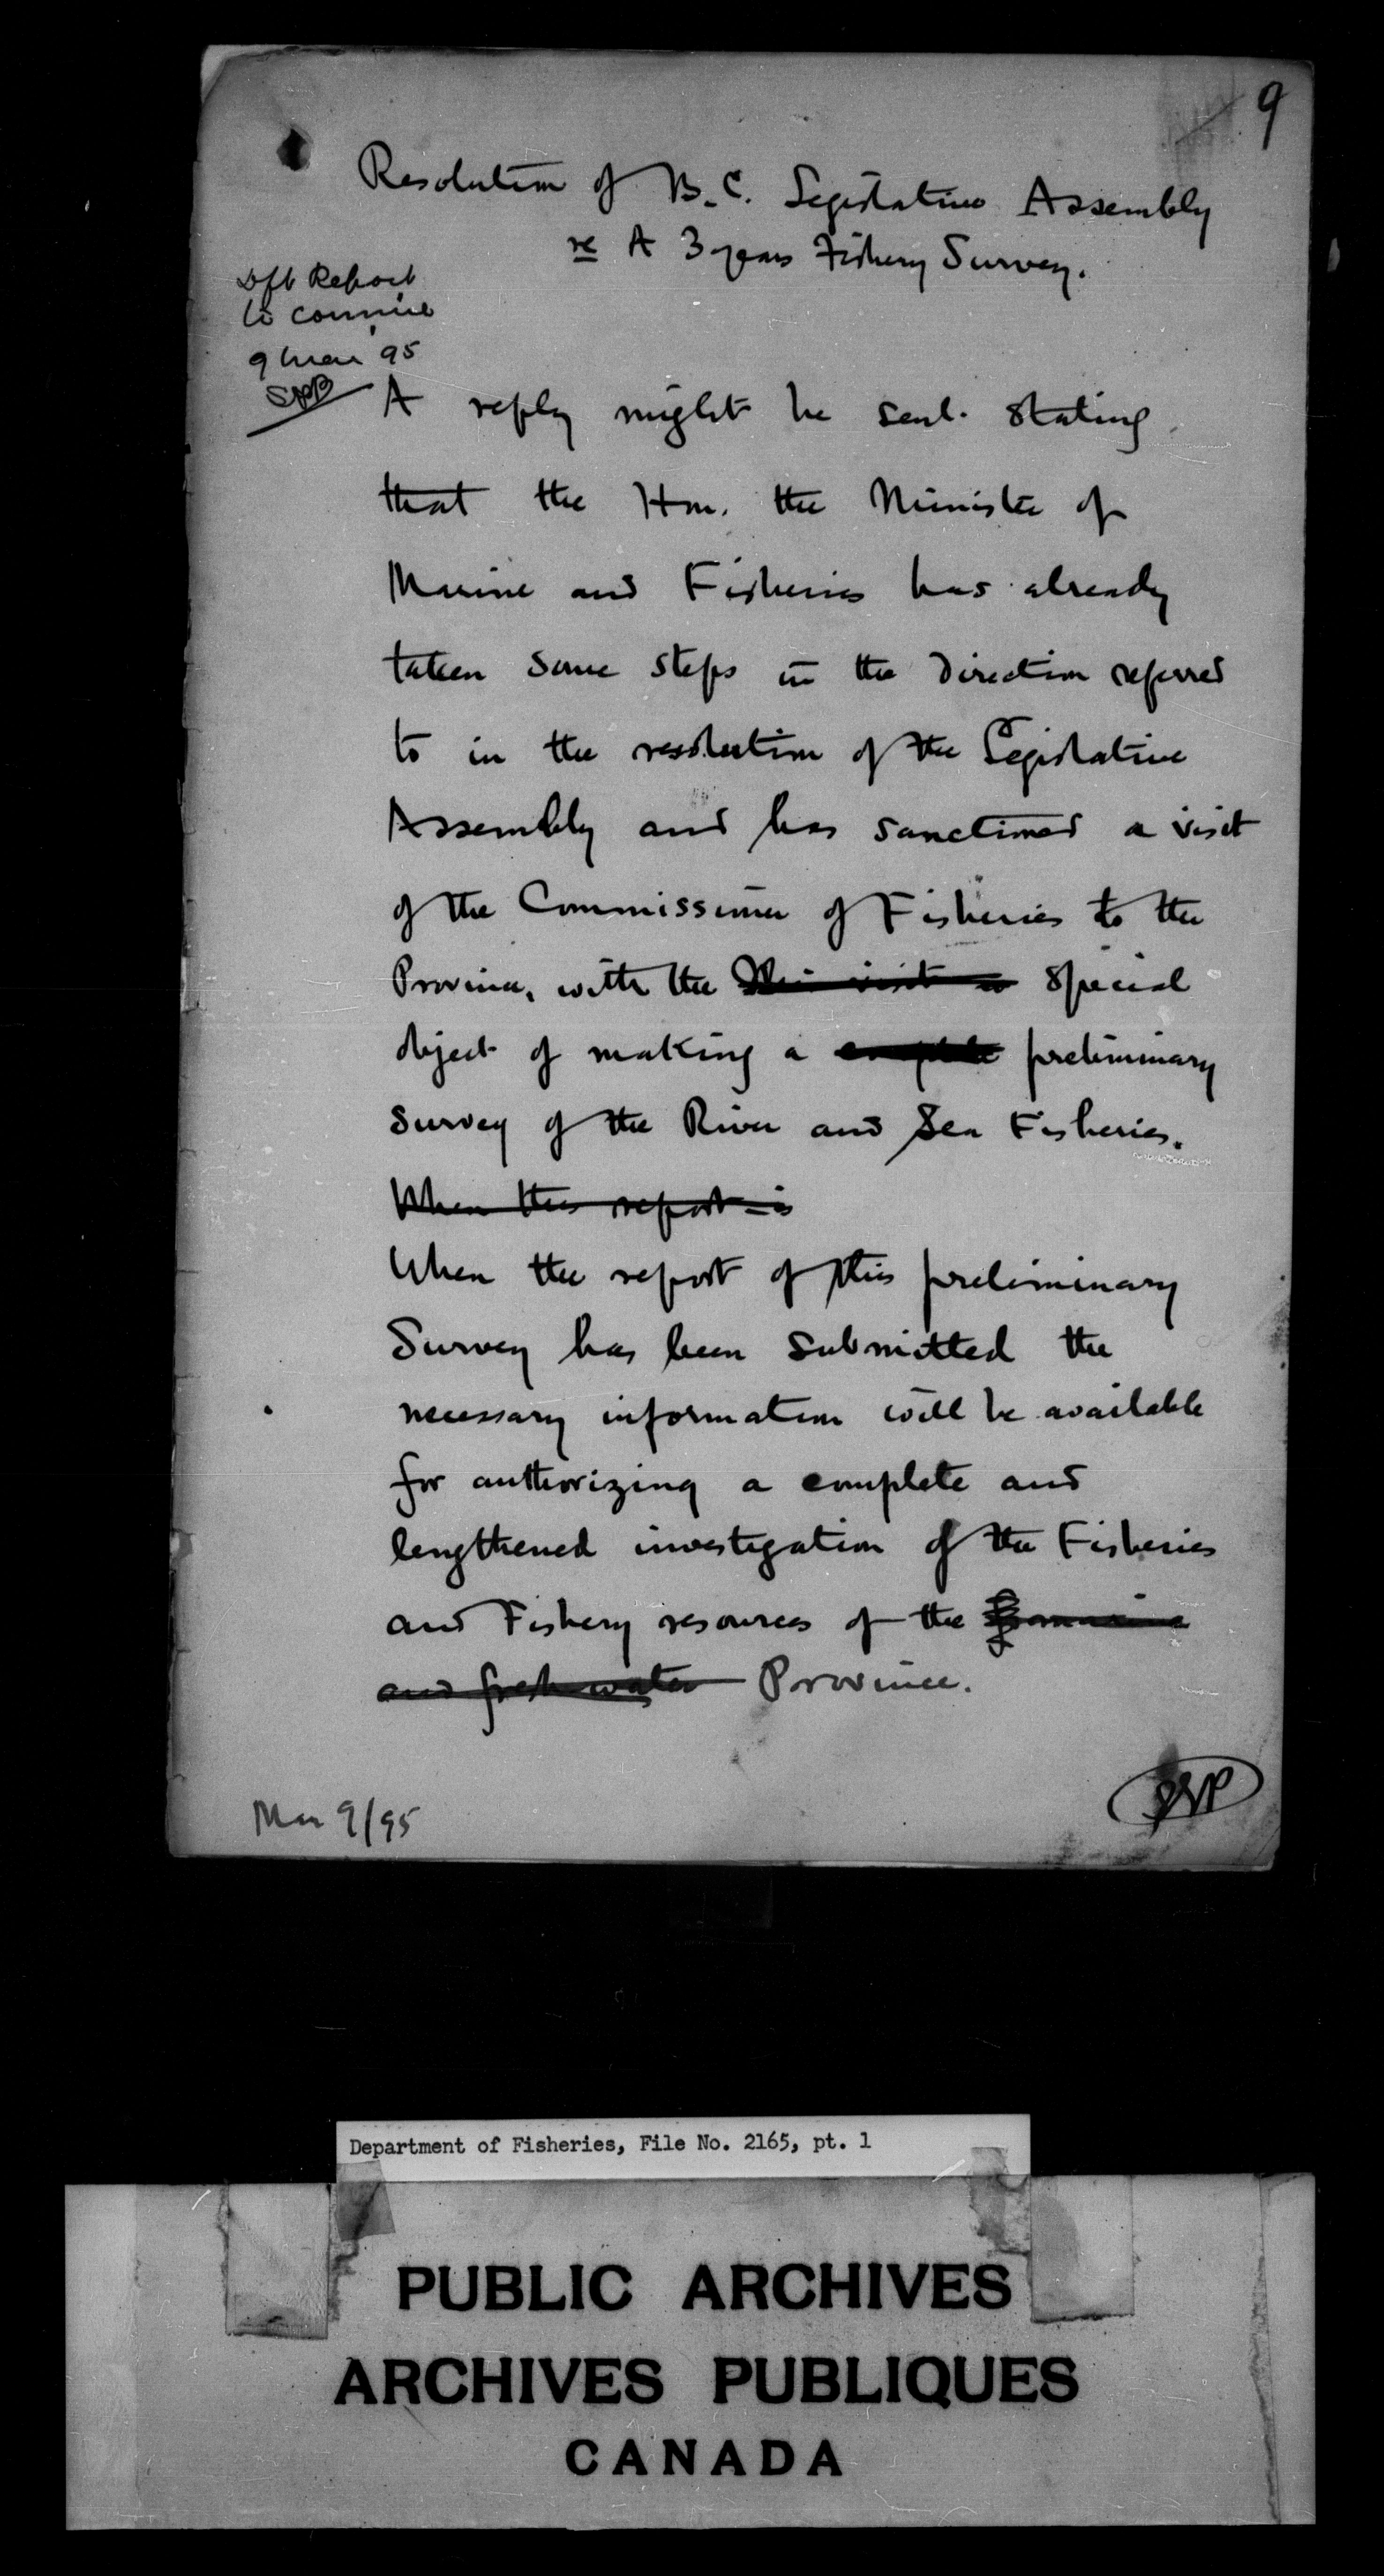 9
Resolution of B.C. Legislative Assembly
re A 3 years Fishery Survey.
Dft Report
to
9 Mar 95
A reply might be sent stating
that the Hon. the Minister of
Marine and Fisheries has already
taken some steps in the direction referred
to in the resolution of the Legislative
Assembly and has sanctioned a visit
of the Commissioner of Fisheries to the
Province, with the visit special
object of making a complete preliminary
survey of the River and Sea Fisheries.
When this report is
When the report of this preliminary
Survey has been submitted the
necessary information will be available
for authorizing a complete and
lengthened investigation of the Fisheries
and Fishery resources of the
and freshwater Province.
Mar 9/95
Department of Fisheries, File No. 2165, pt. 1
PUBLIC ARCHIVES
ARCHIVES PUBLIQUES
CANADA